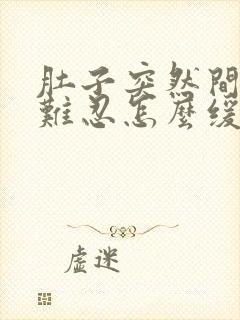 肚子突然間
難忍怎麼緩
虛迷